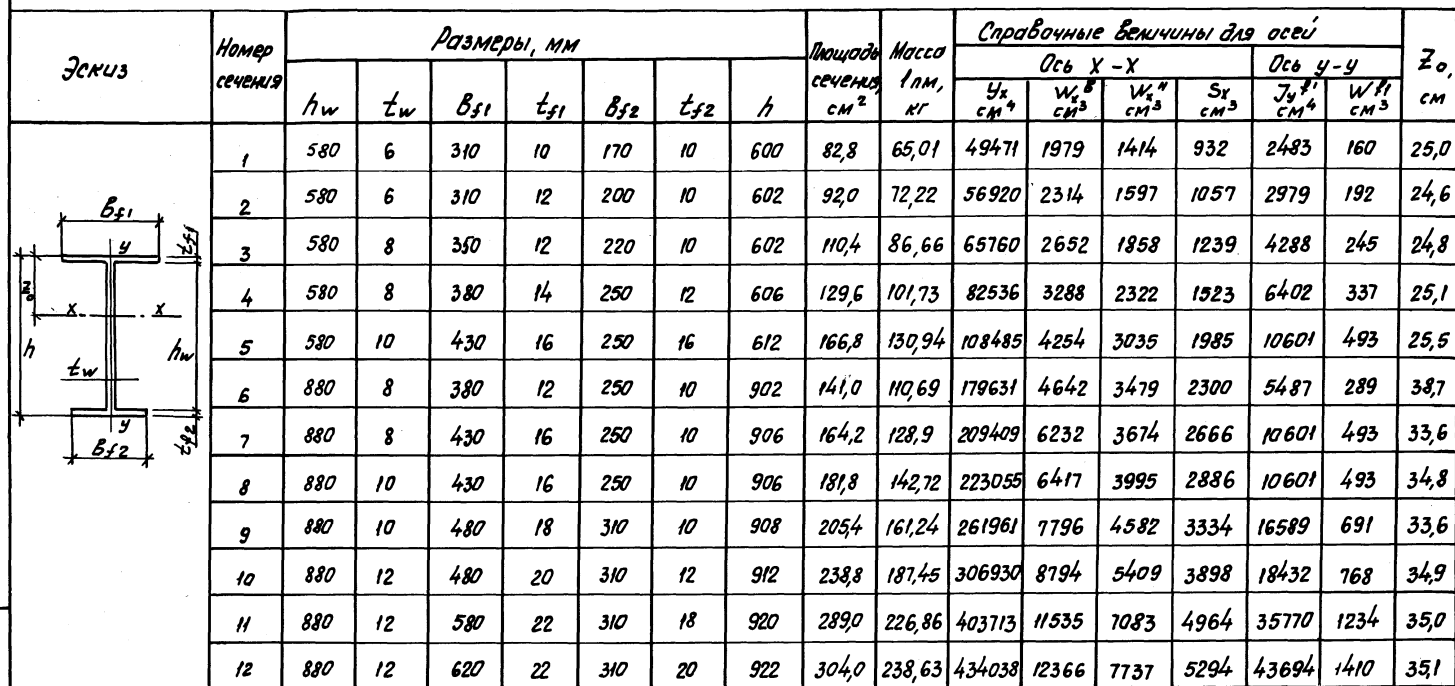 Эскиз
Номер сечения
Размеры, мм
Площадь сечения, см²
Масса 1пм, кг
Справочные величины для осей
Z₀, см
Ось X-X
Ось y-y
hw tw Bf1 tf1 Bf2 tf2 h
Yx см⁴ Wxᴮ см³ Wxᴴ см³ Sx см³ Jyᶠ¹ см⁴ Wᶠ¹ см³
1 580 6 310 10 170 10 600 82,8 65,01 49471 1979 1414 932 2483 160 25,0
2 580 6 310 12 200 10 602 92,0 72,22 56920 2314 1597 1057 2979 192 24,6
3 580 8 350 12 220 10 602 110,4 86,66 65760 2652 1858 1239 4288 245 24,8
4 580 8 380 14 250 12 606 129,6 101,73 82536 3288 2322 1523 6402 337 25,1
5 580 10 430 16 250 16 612 166,8 130,94 108485 4254 3035 1985 10601 493 25,5
6 880 8 380 12 250 10 902 141,0 110,69 179631 4642 3479 2300 5487 289 38,7
7 880 8 430 16 250 10 906 164,2 128,9 209409 6232 3674 2666 10601 493 33,6
8 880 10 430 16 250 10 906 181,8 142,72 223055 6417 3995 2886 10601 493 34,8
9 880 10 480 18 310 10 908 205,4 161,24 261961 7796 4582 3334 16589 691 33,6
10 880 12 480 20 310 12 912 238,8 187,45 306930 8794 5409 3898 18432 768 34,9
11 880 12 580 22 310 18 920 289,0 226,86 403713 11535 7083 4964 35770 1234 35,0
12 880 12 620 22 310 20 922 304,0 238,63 434038 12366 7737 5294 43694 1410 35,1
Bf1
y
tf1
z₀
x x
h
hw
tw
y
Bf2
tf2